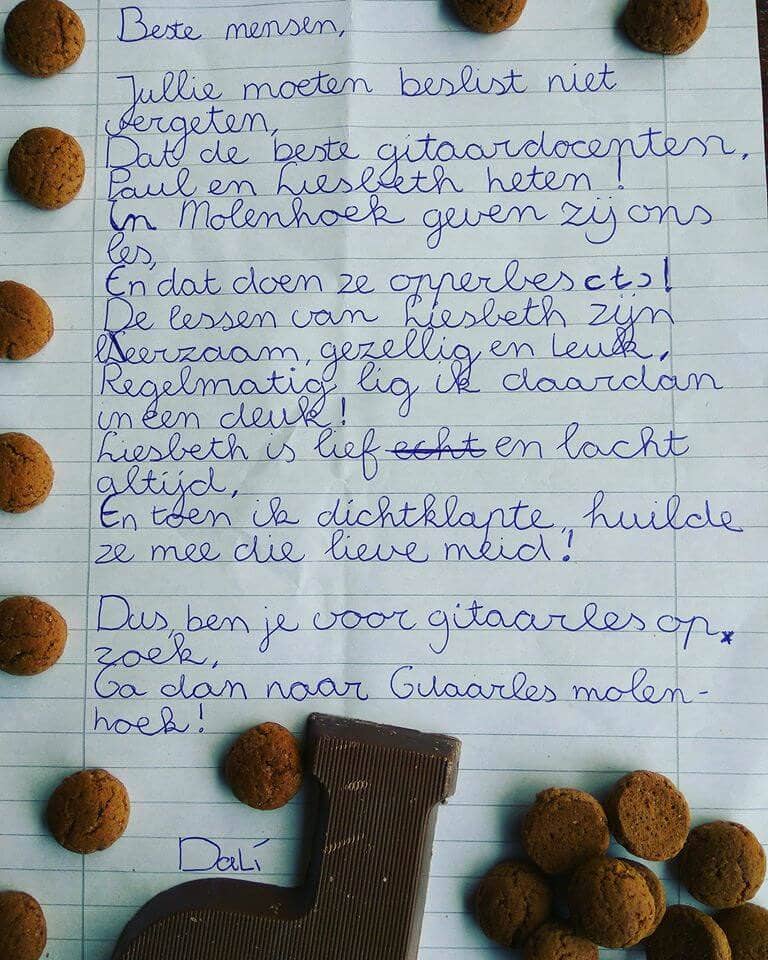 Beste mensen,
Jullie moeten beslist niet
vergeten,
Dat de beste gitaardocenten,
Paul en Liesbeth heten!
In Molenhoek geven zij ons
les,
En dat doen ze opperbescts!
De lessen van Liesbeth zijn
leerzaam, gezellig en leuk,
Regelmatig lig ik daardan
in een deuk!
Liesbeth is lief echt en lacht
altijd,
En toen ik dichtklapte, huilde
ze mee die lieve meid!
Dus, ben je voor gitaarles op
zoek,
Ga dan naar Gitaarles molen-
hoek!
Dalí